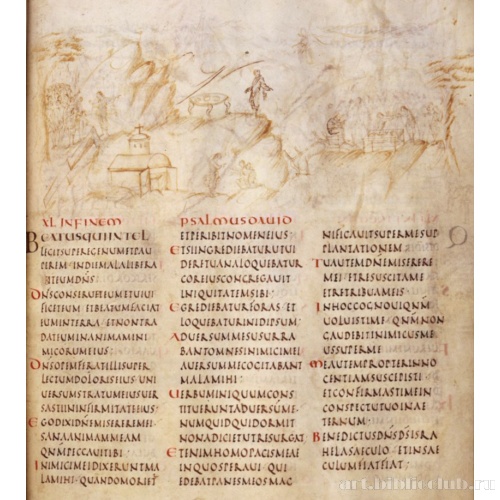 XL INFINEM
BEATUSQUIINTEL
LIGITSUPEREGENUMETPAU
PEREM INDIEMALALIBERA
BITEUMDNS
DNSCONSERUETEUMETUIUI
FICETEUM ETBEATUMFACIAT
EUMINTERRA ETNONTRA
DATEUMINANIMAMINI
MICORUMEIUS
DNSOPEMFERATILLISUPER
LECTUMDOLORISEIUS UNI
UERSUMSTRATUMEIUSUER
SASTIININFIRMITATEEIUS
EGODIXIDNEMISEREREMEI
SANAANIMAMMEAM
QNMPECCAUITIBI
INIMICIMEIDIXERUNTMA
LAMIHI QUANDOMORIET
PSALMUSDAUID
ETPERIBITNOMENEIUS
ETSIINGREDIEBATURUTUI
DERETUANALOQUEBATUR
COREIUSCONGREGAUIT
INIQUITATEMSIBI
EGREDIEBATURFORAS ET
LOQUEBATURINIDIPSUM
ADUERSUMMESUSURRA
BANTOMNESINIMICIMEI
AUERSUMMECOCITABANT
MALAMIHI
UERBUMINIQUUMCONS
TITUERUNTADUERSUME
NUMQUIDQUIDORMIT
NONADICIETUTRESURGAT
ETENIMHOMOPACISMEAE
INQUOSPERAUI QUI
EDEBATPANESMEOSMAC
NIFICAUITSUPERMESUP
PLANTATIONEM
TUAUTEMDNEMISERERE
MEI ETRESUSCITAME
ETRETRIBUAMEIS
INHOCCOGNOUIQNM
VOLUISTIME QNMNON
GAUDEBITINIMICUSME
USSUPERME
MEAUTEMPROPTERINNO
CENTIAMSUSCEPISTI
ETCONFIRMASTIMEIN
CONSPECTUTUOINAE
TERNUM
BENEDICTUSDNSDSISRA
HELASAECULO ETINSAE
CULUMFIATFIAT
art.biblioclub.ru